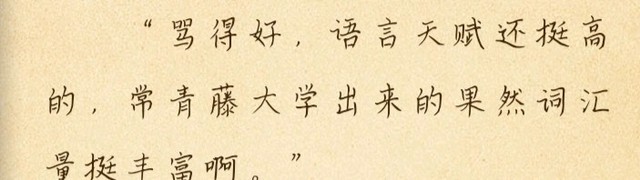 “骂得好，语言天赋还挺高
的，常青藤大学出来的果然词汇
量挺丰富啊。”